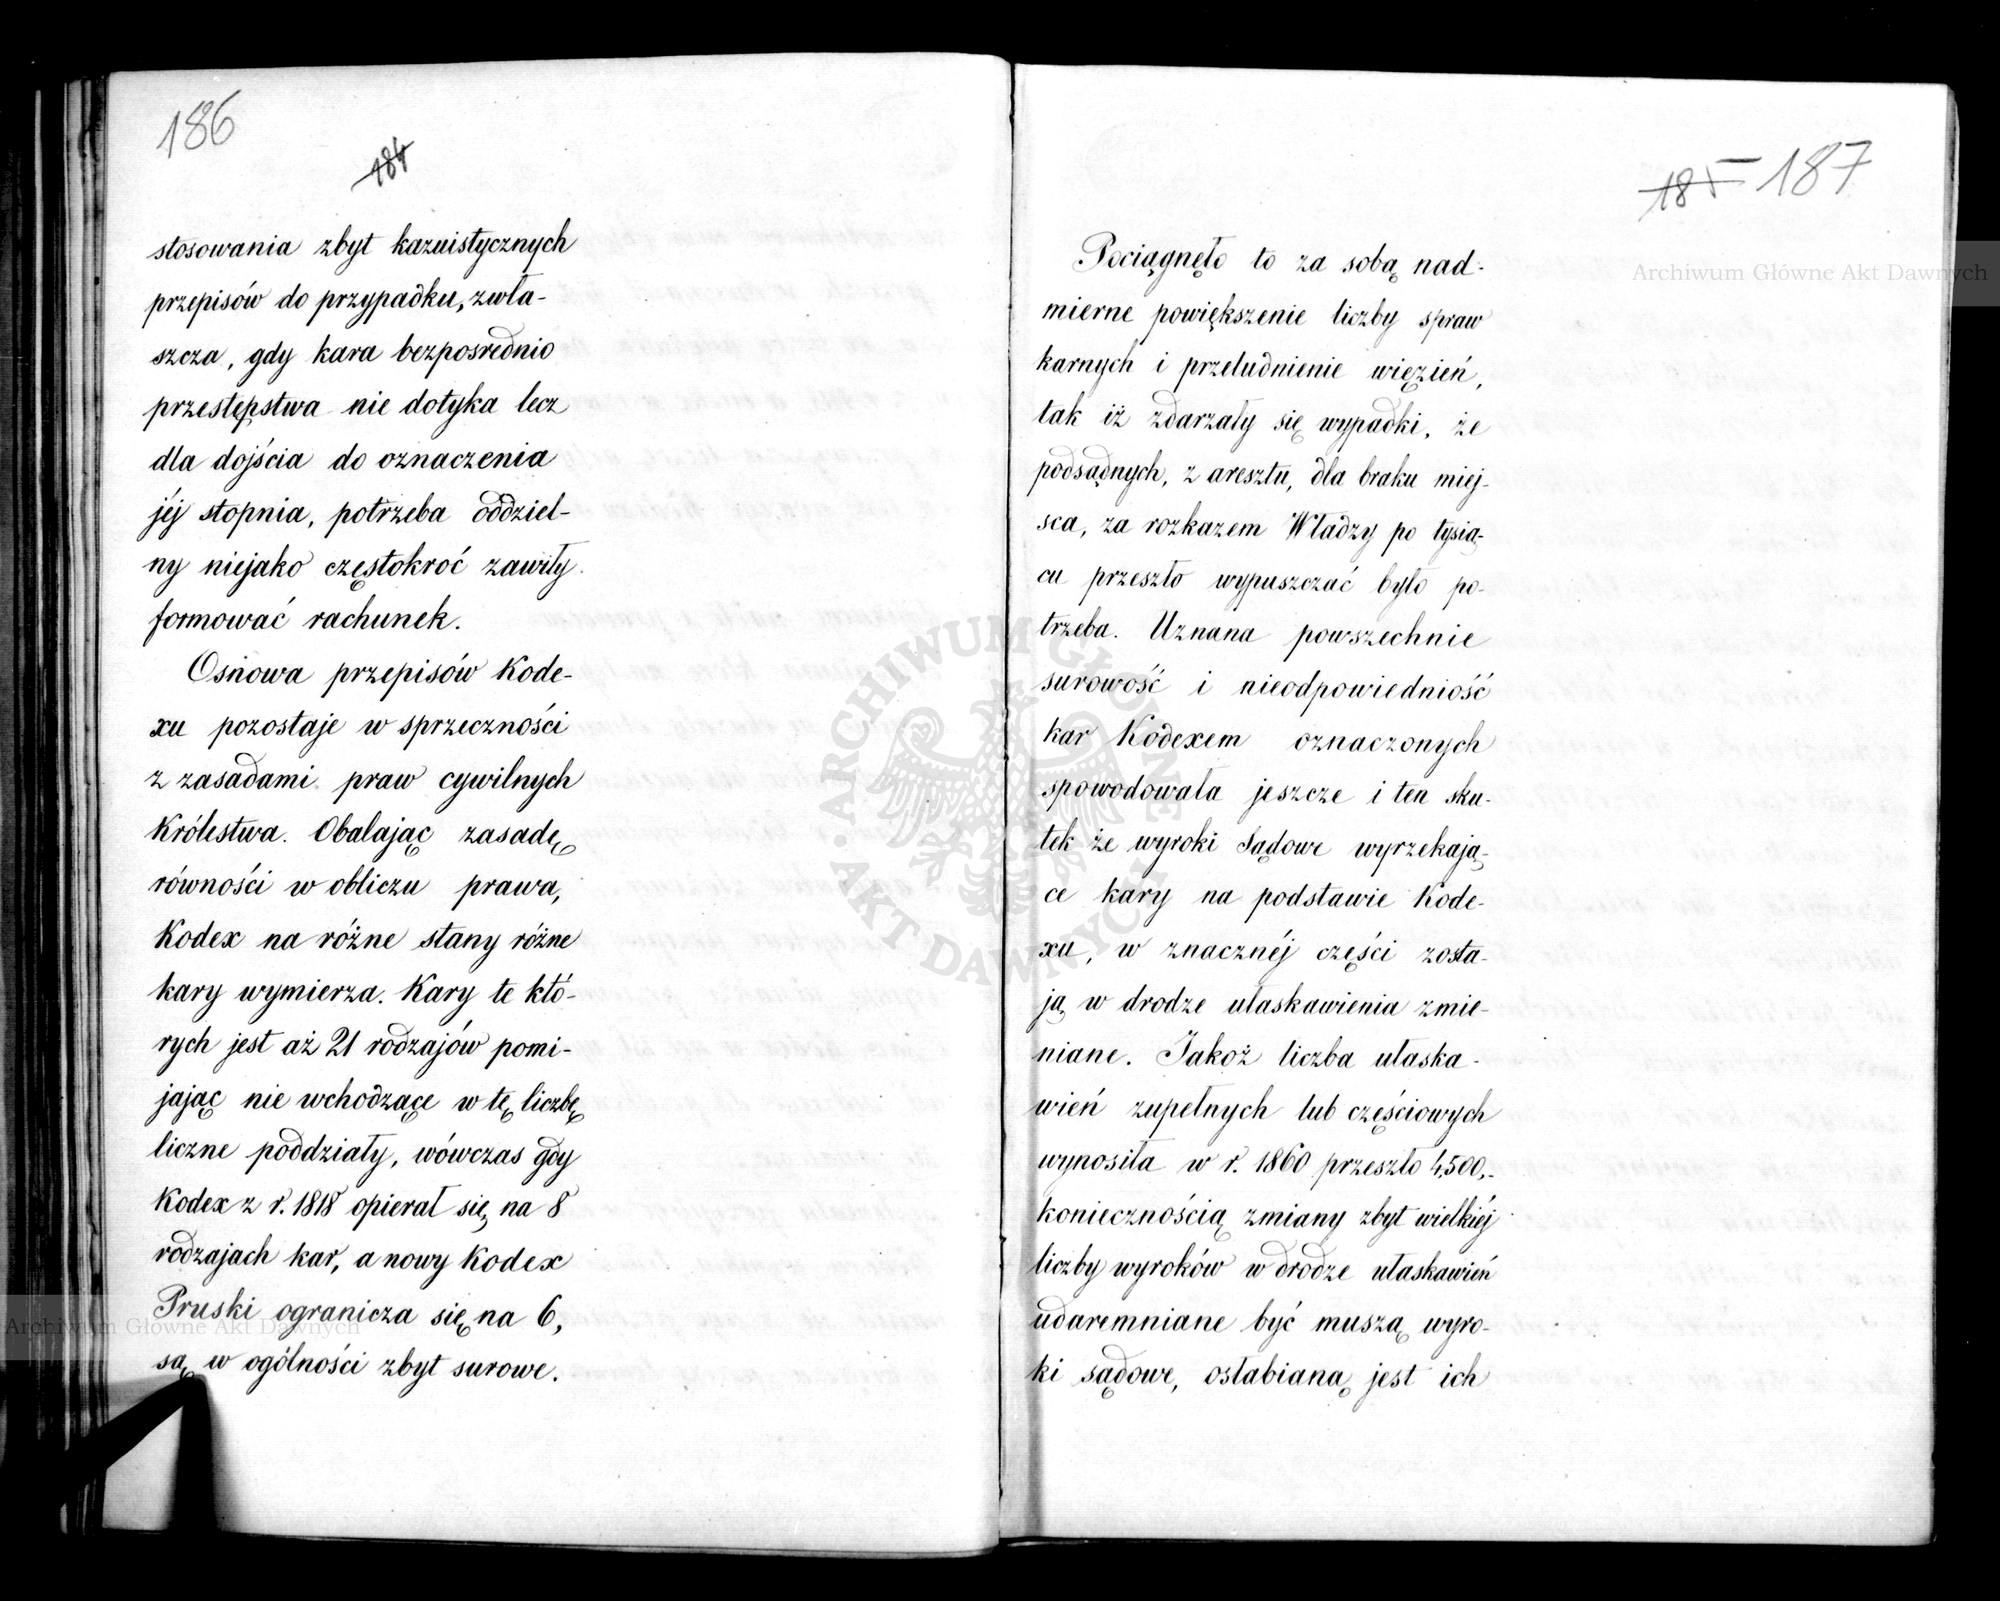 186
184
stosowania zbyt kazuistycznych
przepisów do przypadku, zwła-
szcza, gdy kara bezpośrednio
przestępstwa nie dotyka lecz
dla dojścia do oznaczenia
jéj stopnia, potrzeba oddziel-
ny niejako częstokroć zawiły
formować rachunek.
Osnowa przepisów Kode-
xu pozostaje w sprzeczności
z zasadami praw cywilnych
Królestwa. Obalając zasadę
równości w obliczu prawa,
Kodex na różne stany różne
kary wymierza. Kary te któ-
rych jest aż 21 rodzajów pomi-
jając nie wchodzące w tę liczbę
liczne poddziały, wówczas gdy
Kodex z r. 1818 opierał się na 8
rodzajach kar, a nowy Kodex
Pruski ogranicza się na 6,
są w ogólności zbyt surowe.
185 187
Pociągnęło to za sobą nad-
mierne powiększenie liczby spraw
karnych i przeludnienie więzień,
tak iż zdarzały się wypadki, że
podsądnych, z aresztu, dla braku miej-
sca, za rozkazem Władzy po tysią-
cu przeszło wypuszczać było po-
trzeba. Uznana powszechnie
surowość i nieodpowiedniość
kar Kodexem oznaczonych
spowodowała jeszcze i ten sku-
tek że wyroki Sądowe wyrzekają-
ce kary na podstawie Kode-
xu, w znacznéj części zosta-
ją w drodze ułaskawienia zmie-
niane. Jakoż liczba ułaska-
wień zupełnych lub częściowych
wynosiła w r. 1860 przeszło 4,500,-
koniecznością zmiany zbyt wielkiéj
liczby wyroków w drodze ułaskawień
udaremniane być muszą wyro-
ki sądowe, osłabianą jest ich
Archiwum Główne Akt Dawnych
Archiwum Główne Akt Dawnych
ARCHIWUM GŁÓWNE AKT DAWNYCH